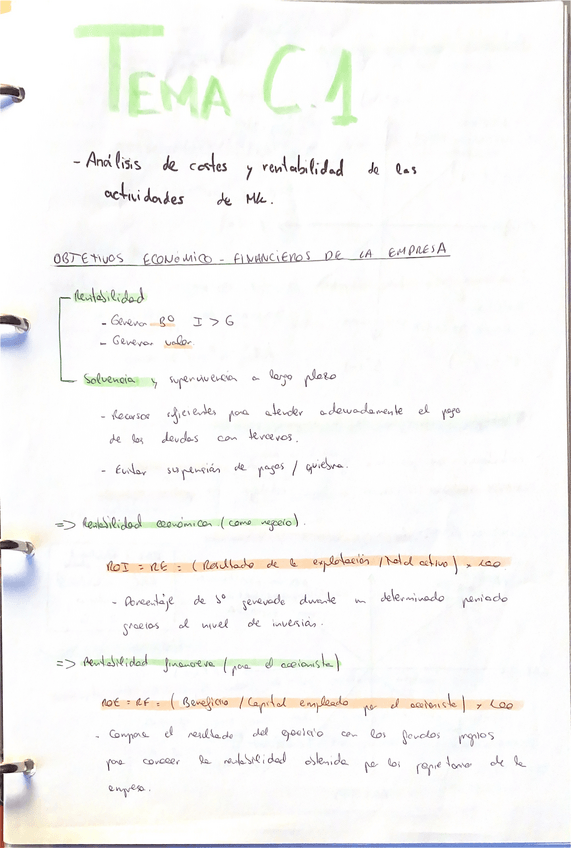 TEMA C.1
- Análisis de costes y rentabilidad de las
actividades de Mk.
OBJETIVOS ECONÓMICO - FINANCIEROS DE LA EMPRESA
Rentabilidad
- Generar Bº I > G
- Generar valor
Solvencia y supervivencia a largo plazo
- Recursos suficientes para atender adecuadamente el pago
de las deudas con terceros.
- Evitar suspensión de pagos / quiebra.
=> Rentabilidad económica (como negocio).
ROI = RE = (Resultado de la explotación / Total activo) x 100
- Porcentaje de Bº generado durante un determinado periodo
gracias al nivel de inversión.
=> Rentabilidad financiera (para el accionista)
ROE = RF = (Beneficio / Capital empleado por el accionista) x 100
- Compara el resultado del ejercicio con los fondos propios
para conocer la rentabilidad obtenida por los propietarios de la
empresa.